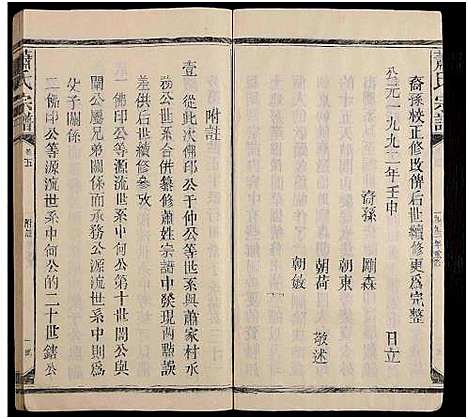 蕭氏宗譜
裔孫校正修改俾后世續修更爲完整
公元一九九二年壬申
月立
裔孫
勵森
朝東
朝荷
朝斂
敬述
附註
壹
從此次佛印公于仲公等世系與蕭家村永
務公世系合併纂修蕭姓宗譜中發現两點誤
差供后世續修參攷
一佛印公等源流世系中何公第十世閣公與
閘公屬兄弟關係而承務公源流世系中則爲
父子關係
二佛印公等源流世系中何公的二十世鍺公
蕭氏宗譜
卷五
附註